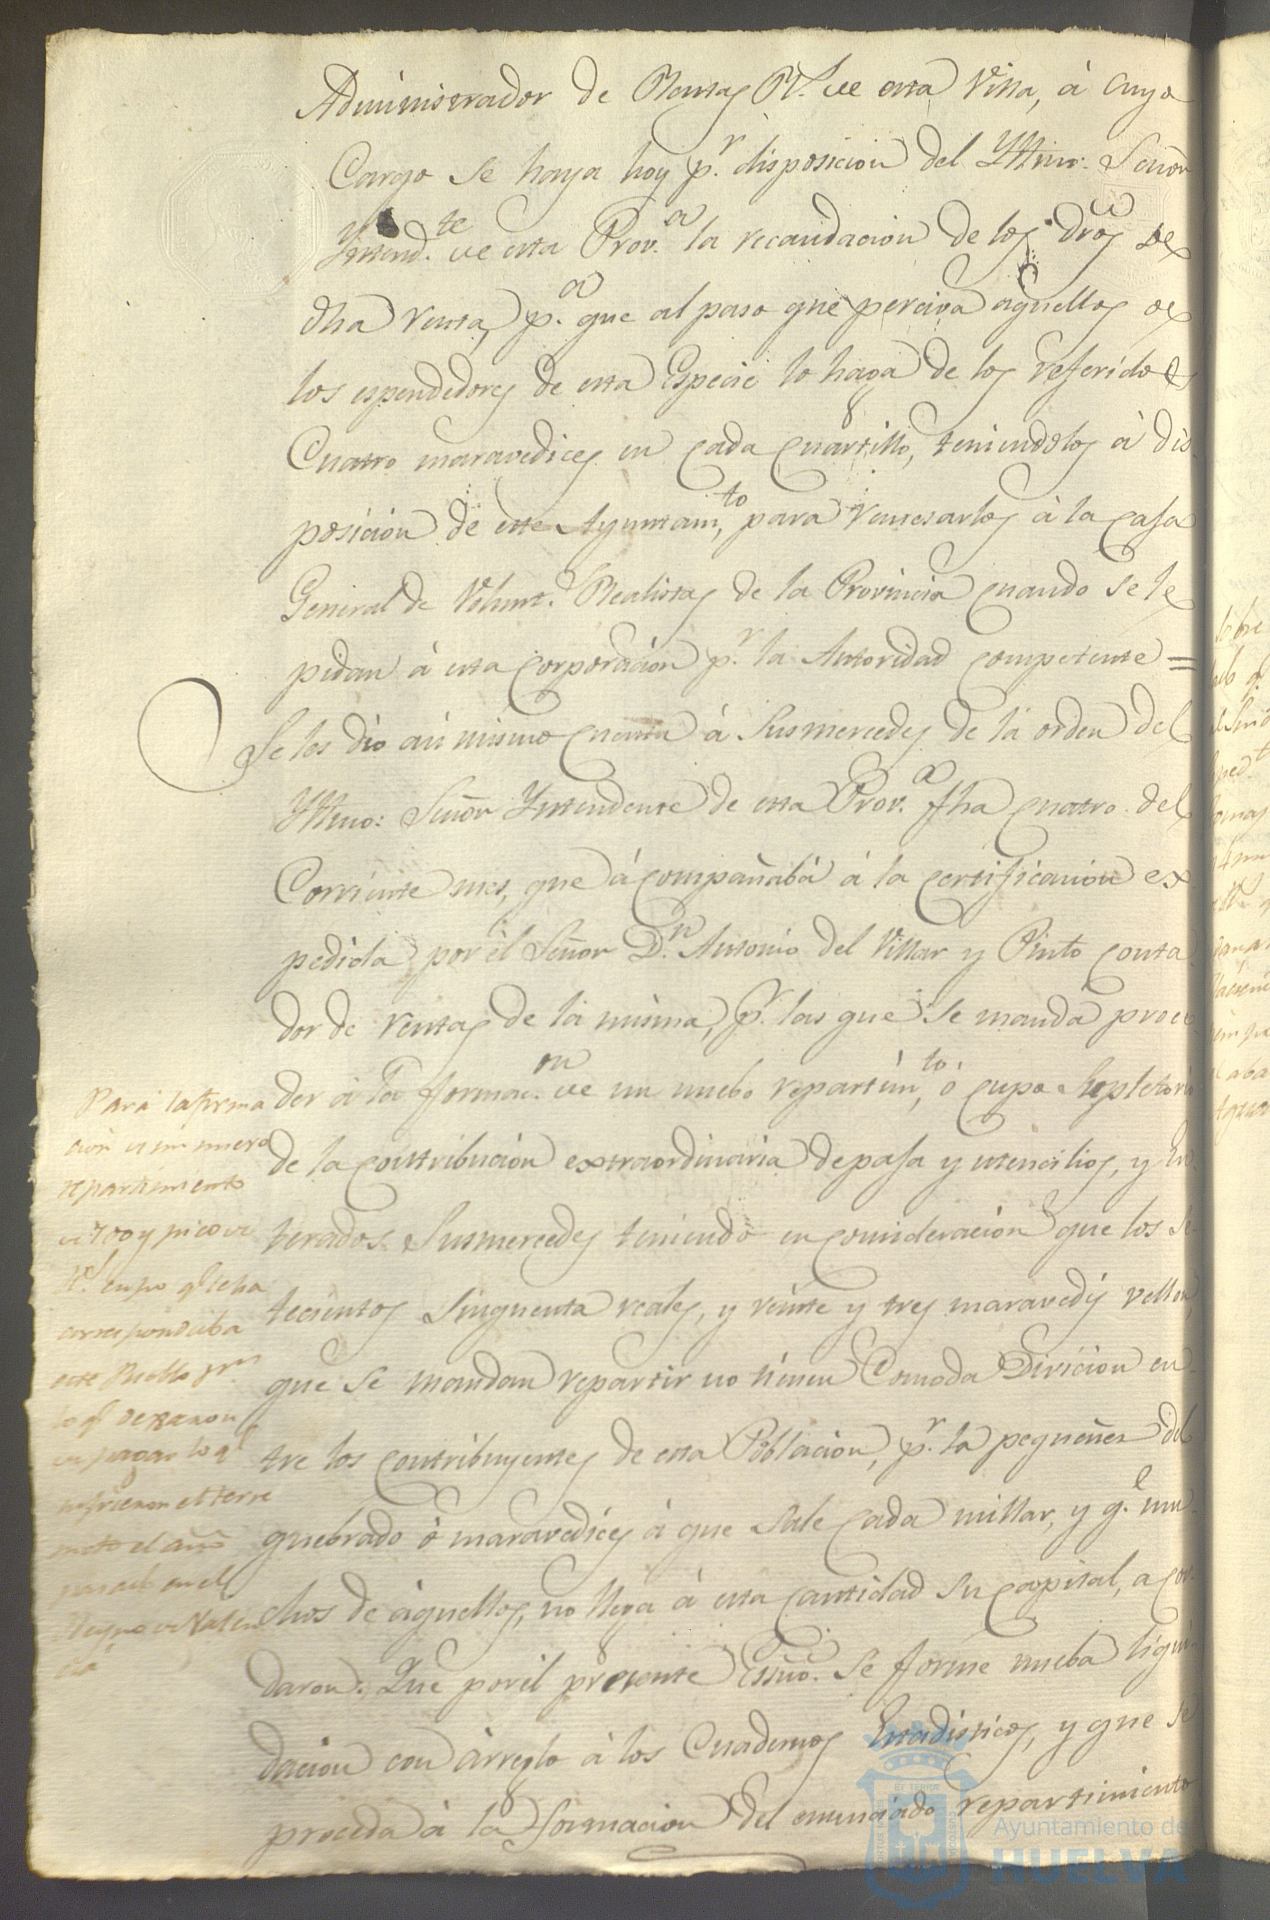 Administrador de Rentas R.s de esta Villa, á cuyo
Cargo se haya hoy p.r disposicion del Yltmo: Señor
Yntend.te de esta Prov.a la recaudacion de los dros de
dha renta, p.a que al paso que perciva aquellos de
los espendedores de esta Especie lo haga de los referidos
Cuatro maravedices en cada quartillo, teniendolos á dis-
posicion de este Ayuntam.to, para remesarlos á la Casa
General de Volunt.s Realistas de la Provincia quando se le
pidan á esta corporacion p.r la Autoridad competente =
Se les dio asi mismo cuenta á Susmercedes de la orden del
Yltmo: Señor Yntendente de esta Prov.a fha quatro del
Corriente mes, que acompañaba á la certificacion ex
pedida por el Señor D.n Antonio del Villar y Pinto conta
dor de rentas de la misma, p.r las que se manda proce
der á la formac.on de un nuebo repartim.to, ó cupo Supletorio
de la contribucion extraordinaria de paja y utencilios, y en
terados Susmercedes teniendo en concideracion que los se
tecientos Sinquenta reales, y veinte y tres maravedis vellon,
que se mandan repartir no tienen Comoda Divicion en-
tre los contribuyentes de esta Poblacion, p.r la pequeñes del
quebrado ó maravedices á que sale cada millar, y q.e mu-
chos de aquellos, no llega á esta cantidad su capital, acor-
daron: Que por el presente Essno. se forme nueba liqui-
dacion con arreglo á los Cuadernos Estadisticos, y que se
proceda á la formacion del enunciado repartimiento
Para la forma
cion de un nuevo
repartimiento
de 700 y pico de
r.s cupo q.e le ha
correspondido a
este Pueblo p.r
lo q.e dexaron
de pagar los q.e
sufrieron el terre
moto el año
pasado en el
Reyno de Valen
cia
Ayuntamiento de
HUELVA